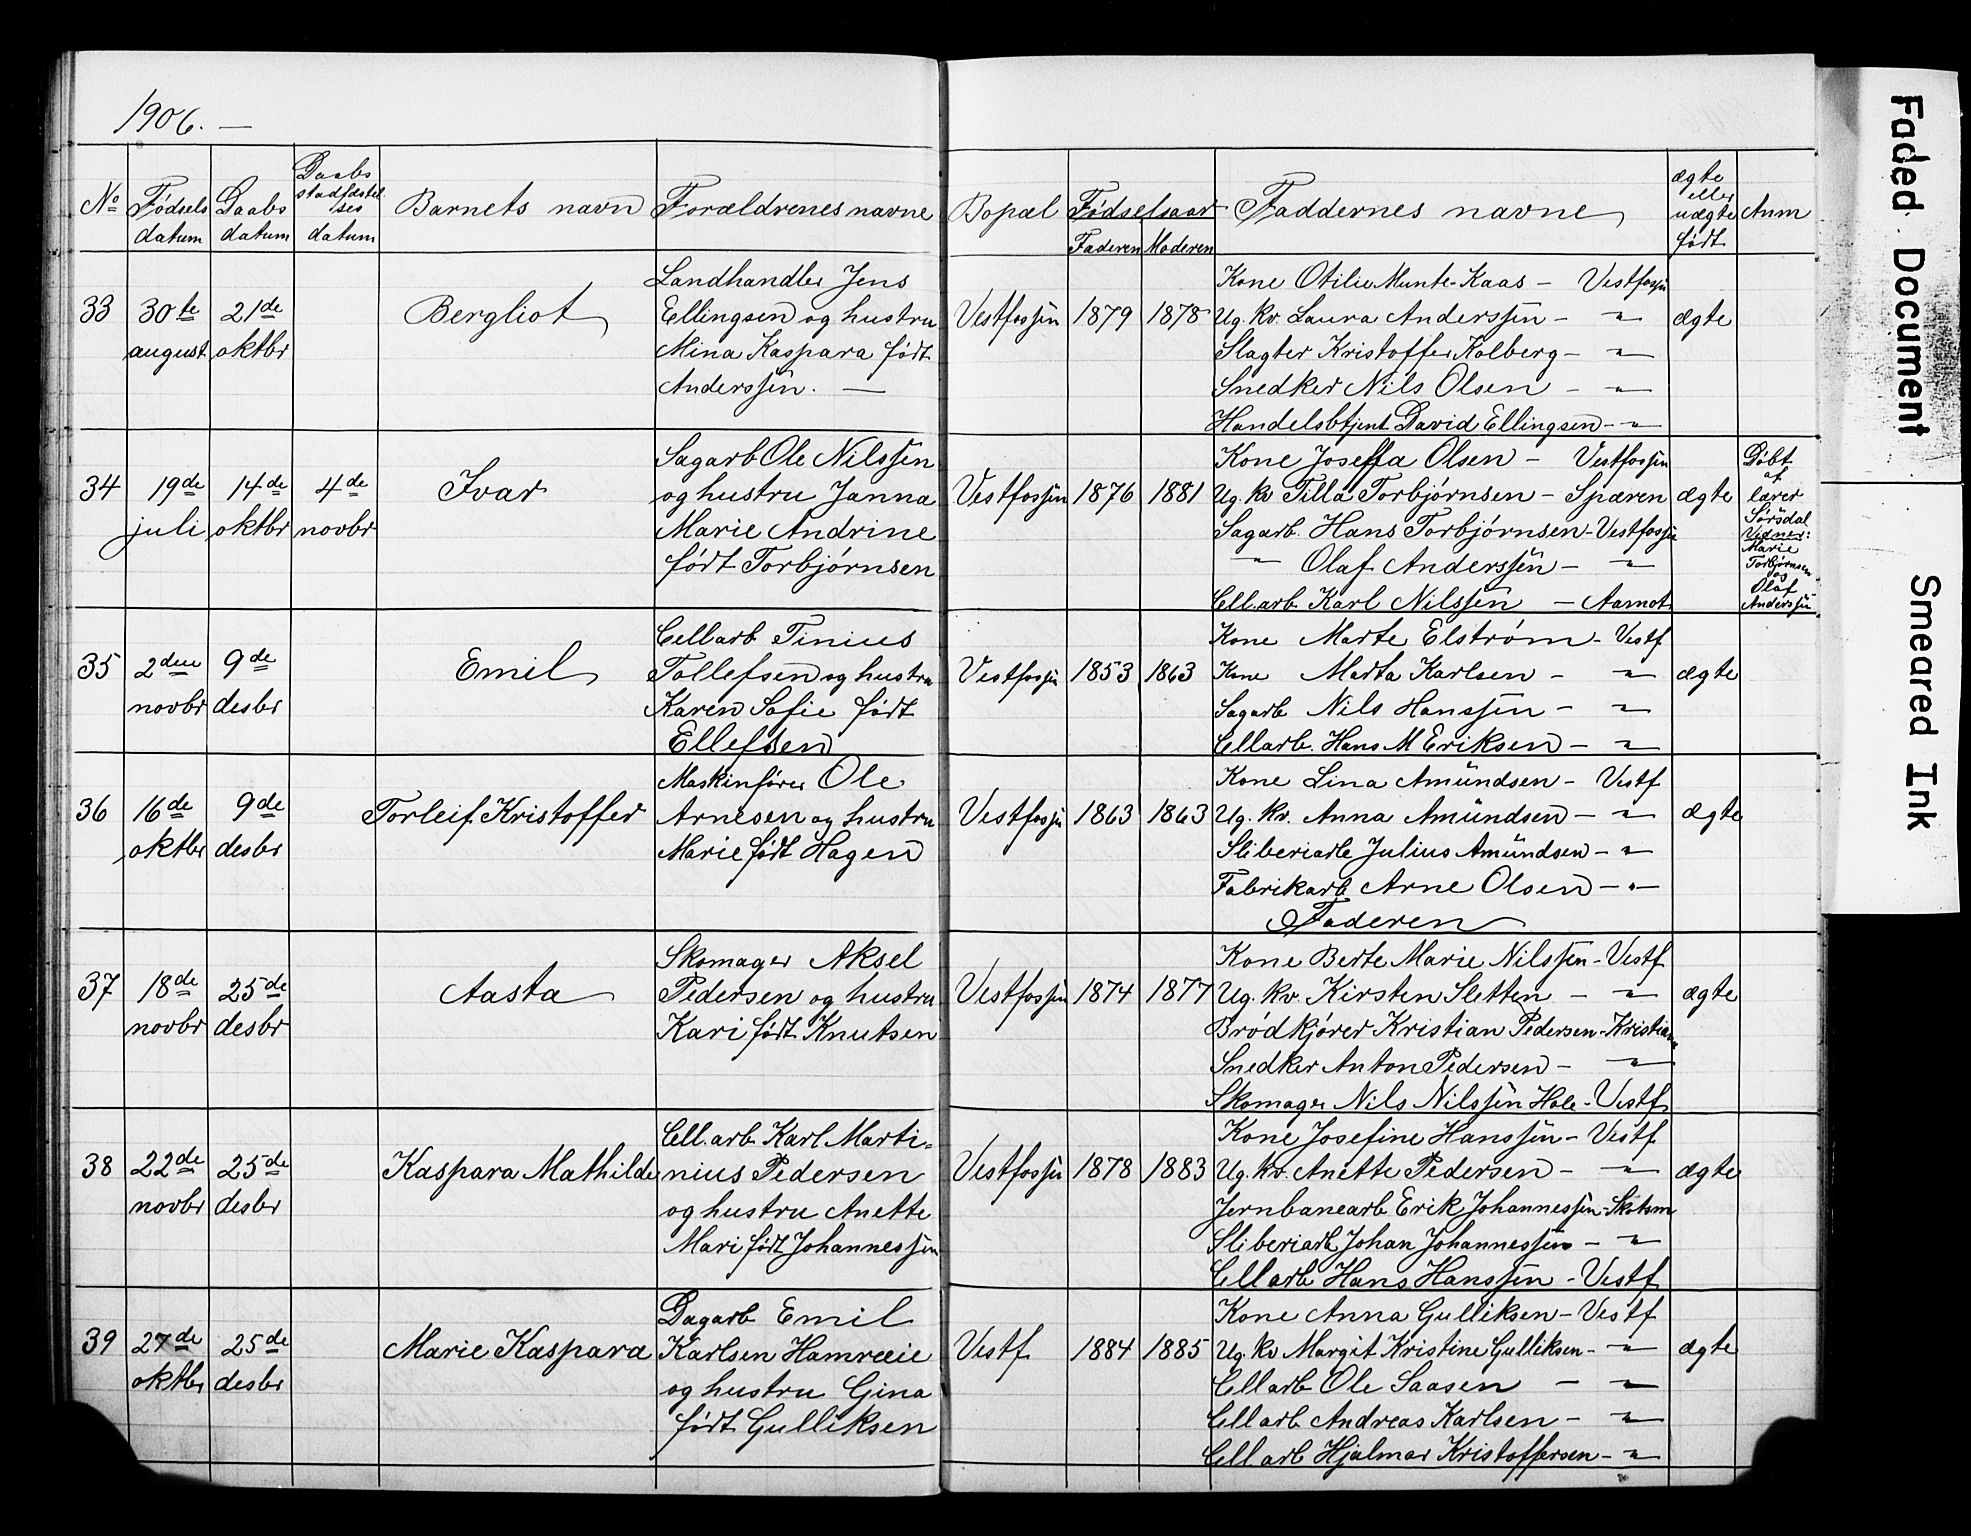 1906. —
No
Fødsels datum
Daabs datum
Daabs stadfæstelses datum
Barnets navn
Forældrenes navne
Bopæl
Fødselsaar
Faderen
Moderen
Faddernes navne
ægte eller uægte født
Anm
33
30te august
21de oktbr
Bergliot
Landhandler Jens
Ellingsen og hustru
Mina Kaspara født
Anderssen. —
Vestfossen
1879
1878
Kone Otilie Munte-Kaas — Vestfossen
Ug. kv. Laura Anderssen — "
Slagter Kristoffer Kolberg — "
Snedker Nils Olsen — "
Handelsbtjent David Ellingsen — "
ægte
34
19de juli
14de oktbr
4de novbr
Ivar
Sagarb Ole Nilssen
og hustru Janna
Marie Andrine
født Torbjørnsen
Vestfossen
1876
1881
Kone Joseffa Olsen — Vestfossen
Ug. kv Tilla Torbjørnsen — Spæren
Sagarb. Hans Torbjørnsen — Vestfossen
" Olaf Anderssen — "
Cell.arb Karl Nilssen — Aamot
ægte
Døbt
af
lærer
Sørsdal
Vidner:
Marie
Torbjørnsen
og
Olaf
Anderssen
35
2den novbr
9de desbr
Emil
Cellarb Tinius
Tollefsen og hustru
Karen Sofie født
Ellefsen
Vestfossen
1853
1863
Kone Marte Elstrøm — Vestf
Kone Marta Karlsen — "
Sagarb Nils Hanssen — "
Cellarb. Hans M Eriksen — "
ægte
36
16de oktbr
9de desbr
Torleif Kristoffer
Maskinfører Ole
Arnesen og hustru
Marie født Hagen
Vestfossen
1863
1863
Kone Lina Amündsen — Vestf
Ug. kv. Anna Amündsen — "
Sliberiarb Julius Amündsen — "
Fabrikarb Arne Olsen — "
Faderen
ægte
37
18de novbr
25de desbr
Aasta
Skomager Aksel
Pedersen og hustru
Kari født Knutsen
Vestfossen
1874
1877
Kone Berte Marie Nilssen — Vestf
Ug. kv. Kirsten Sletten — "
Brødkjører Kristian Pedersen — Kristiania
Snedker Anton Pedersen — "
Skomager Nils Nilssen Hole — Vestf
ægte
38
22de novbr
25de desbr
Kaspara Mathilde
Cell.arb Karl Marti=
nius Pedersen
og hustru Anette
Mari født Johannessen
Vestfossen
1878
1883
Kone Josefine Hanssen — Vestf
Ug. kv. Anette Pedersen — "
Jernbanearb Erik Johannessen — Skotsm
Sliberiarb Johan Johannessen — "
Cellarb Hans Hanssen — Vestf
ægte
39
27de oktbr
25de desbr
Marie Kaspara
Dagarb Emil
Karlsen Hamreeie
og hustru Gina
født Gulliksen
Vestf
1884
1885
Kone Anna Gulliksen — Vestf
Ug. kv Margit Kristine Gulliksen — "
Cellarb Ole Saasen — "
Cellarb Andreas Karlsen — "
Cellarb Hjalmar Kristoffersen — "
ægte
Faded Document
Smeared Ink